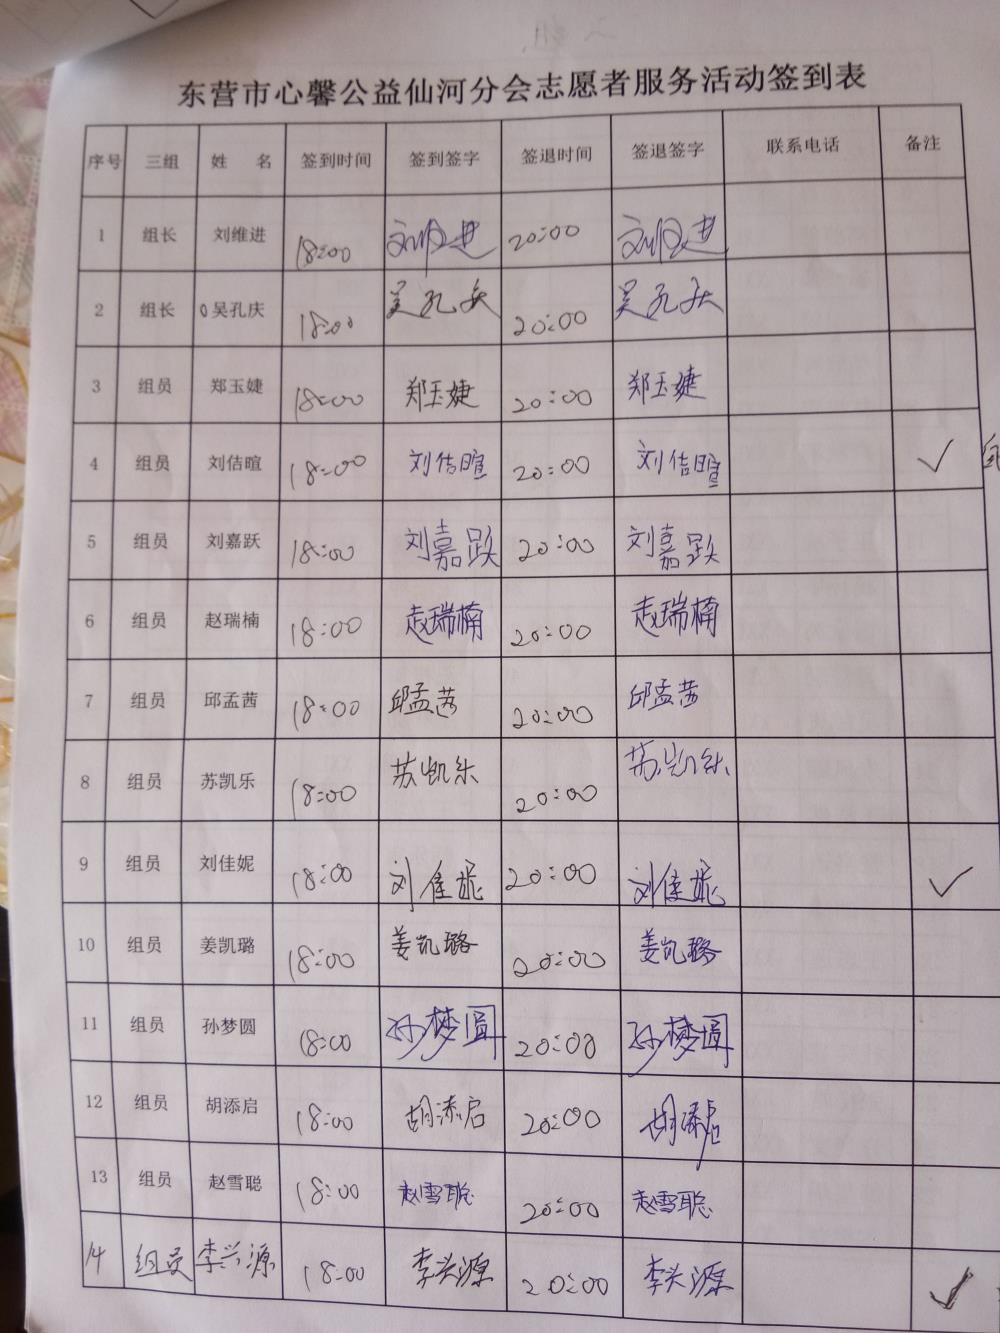 东营市心馨公益仙河分会志愿者服务活动签到表
序号 三组 姓 名 签到时间 签到签字 签退时间 签退签字 联系电话 备注
1 组长 刘维进 18:00 刘维进 20:00 刘维进
2 组长 吴孔庆 18:00 吴孔庆 20:00 吴孔庆
3 组员 郑玉婕 18:00 郑玉婕 20:00 郑玉婕
4 组员 刘佶暄 18:00 刘佶暄 20:00 刘佶暄 ✓
5 组员 刘嘉跃 18:00 刘嘉跃 20:00 刘嘉跃
6 组员 赵瑞楠 18:00 赵瑞楠 20:00 赵瑞楠
7 组员 邱孟茜 18:00 邱孟茜 20:00 邱孟茜
8 组员 苏凯乐 18:00 苏凯乐 20:00 苏凯乐
9 组员 刘佳妮 18:00 刘佳妮 20:00 刘佳妮 ✓
10 组员 姜凯璐 18:00 姜凯璐 20:00 姜凯璐
11 组员 孙梦圆 18:00 孙梦圆 20:00 孙梦圆
12 组员 胡添启 18:00 胡添启 20:00 胡添启
13 组员 赵雪聪 18:00 赵雪聪 20:00 赵雪聪
14 组员 李兴源 18:00 李兴源 20:00 李兴源 ✓